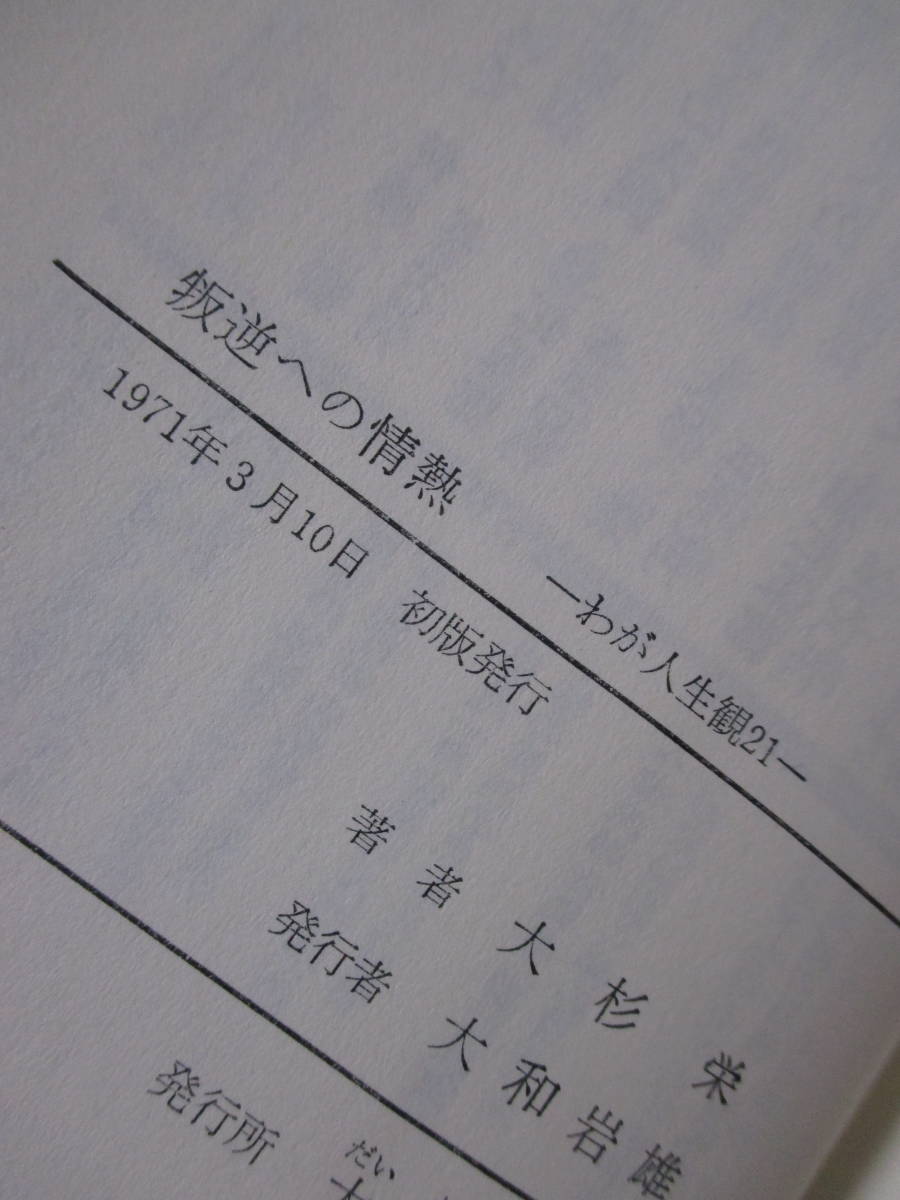 叛逆への情熱 ―わが人生観21―
1971年3月10日 初版発行
著者 大杉栄
発行者 大和岩雄
発行所 だい